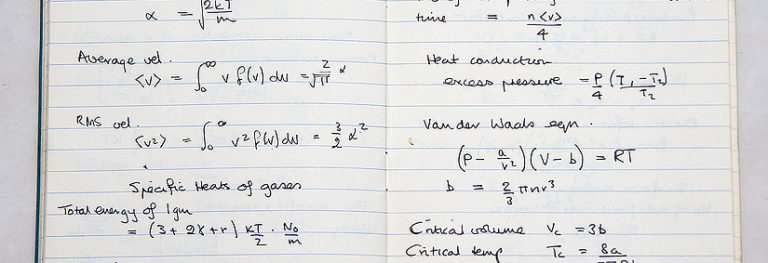 α = √2kT/m
Average vel.
<v> = ∫₀^∞ v f(v) dv = 2/√π α
RMS vel.
<v²> = ∫₀^∞ v² f(v) dv = 3/2 α²
Specific Heats of gases
Total energy of 1 gm
= (3 + 2γ + r) kT/2 . N₀/m
time = n<v>/4
Heat conduction
excess pressure = P/4 (T₁ - T₂)/T₂
Van der Waals eqn.
(P - a/v²)(V - b) = RT
b = 2/3 πnσ³
Critical volume Vc = 3b
Critical temp Tc = 8a